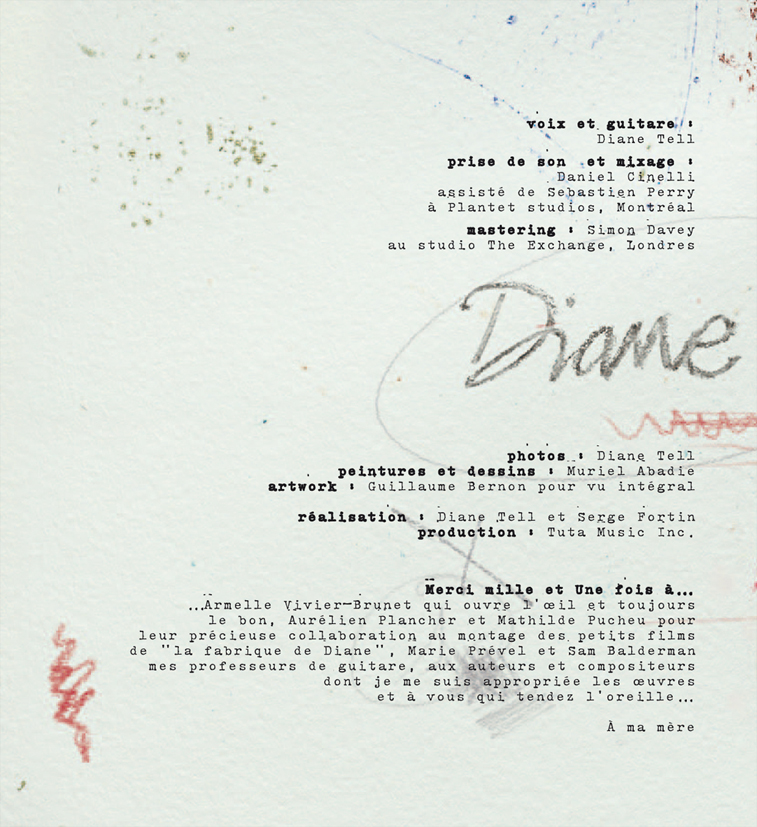 voix et guitare :
Diane Tell
prise de son et mixage :
Daniel Cinelli
assisté de Sebastien Perry
à Plantet studios, Montréal
mastering : Simon Davey
au studio The Exchange, Londres
Diane
photos : Diane Tell
peintures et dessins : Muriel Abadie
artwork : Guillaume Bernon pour vu intégral
réalisation : Diane Tell et Serge Fortin
production : Tuta Music Inc.
Merci mille et Une fois à...
...Armelle Vivier-Brunet qui ouvre l'œil et toujours
le bon, Aurélien Plancher et Mathilde Pucheu pour
leur précieuse collaboration au montage des petits films
de "la fabrique de Diane", Marie Prével et Sam Balderman
mes professeurs de guitare, aux auteurs et compositeurs
dont je me suis appropriée les œuvres
et à vous qui tendez l'oreille...
À ma mère